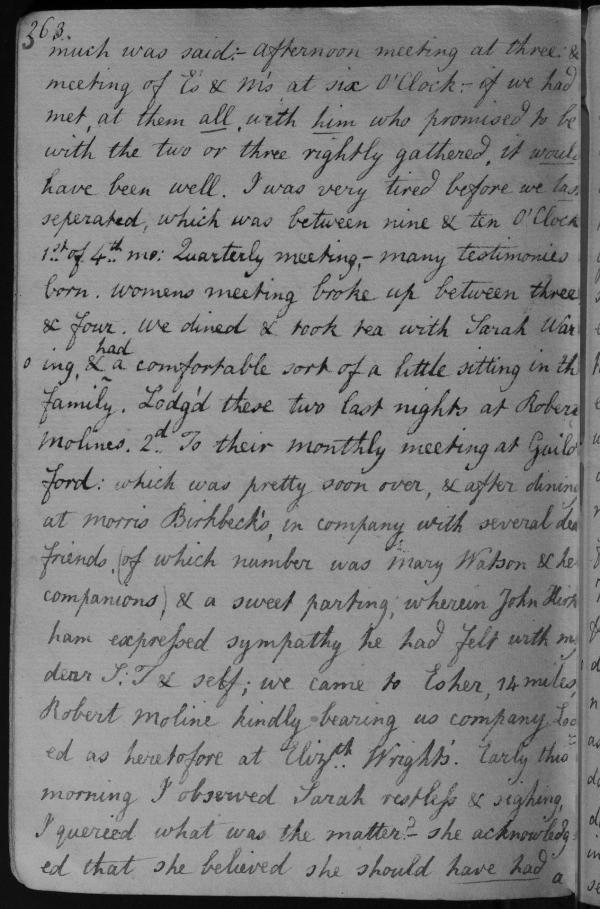 263.
much was said:- afternoon meeting at three: &
meeting of Es & Ms at six O'Clock:- if we had
met, at them all, with him who promised to be
with the two or three rightly gathered, it would
have been well. I was very tired before we las
seperated, which was between nine & ten O'Clock
1st of 4th mo: Quarterly meeting,- many testimonies
born. womens meeting broke up between three
& four. we dined & took tea with Sarah War
ing, & had a comfortable sort of a little sitting in th
family. Lodg'd these two last nights at Robert
Molines. 2d To their monthly meeting at Guild
ford: which was pretty soon over, & after dining
at Morris Birkbeck's, in company with several dea
friends, (of which number was Mary Watson & he
companions) & a sweet parting; wherein John Kirk
ham expressed sympathy he had felt with my
dear S: T & self; we came to Esher, 14 miles,
Robert Moline kindly bearing us company, Lod
ed as heretofore at Elizth Wright's. Early this
morning I observed Sarah restless & sighing,
I queried what was the matter?- she acknowledg
ed that she believed she should have had a